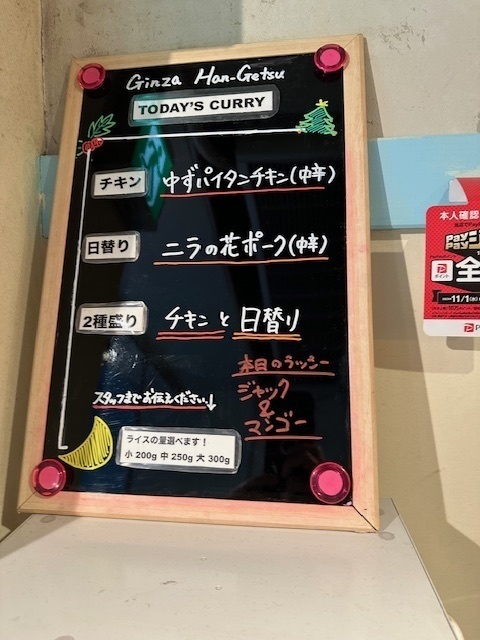 Ginza Han-Getsu
TODAY'S CURRY
チキン
ゆずパイタンチキン(中辛)
日替り
ニラの花ポーク(中辛)
2種盛り
チキンと日替り
本日のラッシー
ジャック
&
マンゴー
スタッフまでお伝えください↓
ライスの量選べます!
小 200g 中 250g 大 300g
本人確認
PayPay
ポイント
全
11/1